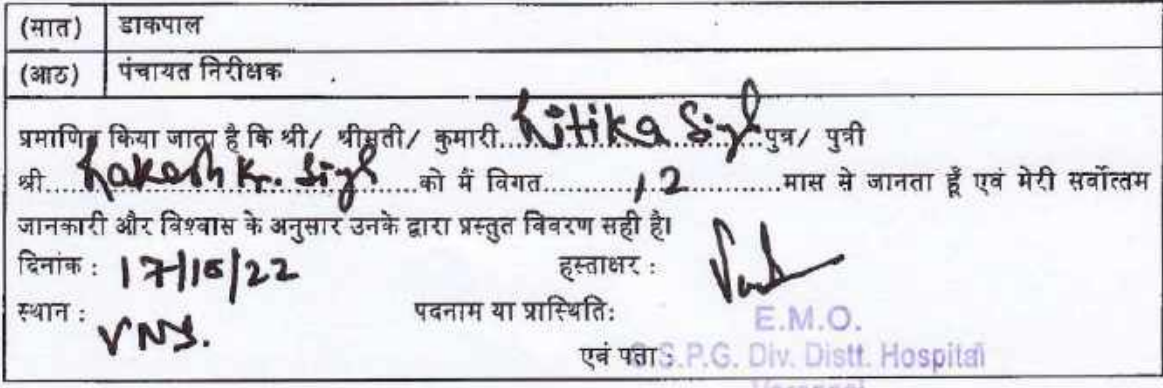 (सात) डाकपाल
(आठ) पंचायत निरीक्षक
प्रमाणित किया जाता है कि श्री/ श्रीमती/ कुमारी.....Ritika Singh.....पुत्र/ पुत्री
श्री.....Rakesh Kr. Singh.....को मैं विगत...........12...........मास से जानता हूँ एवं मेरी सर्वोत्तम
जानकारी और विश्वास के अनुसार उनके द्वारा प्रस्तुत विवरण सही है।
दिनांक : 17/10/22 हस्ताक्षर :
स्थान : VNS. पदनाम या प्रास्थिति: E.M.O.
एवं पता : S.S.P.G. Div. Distt. Hospital
Varanasi